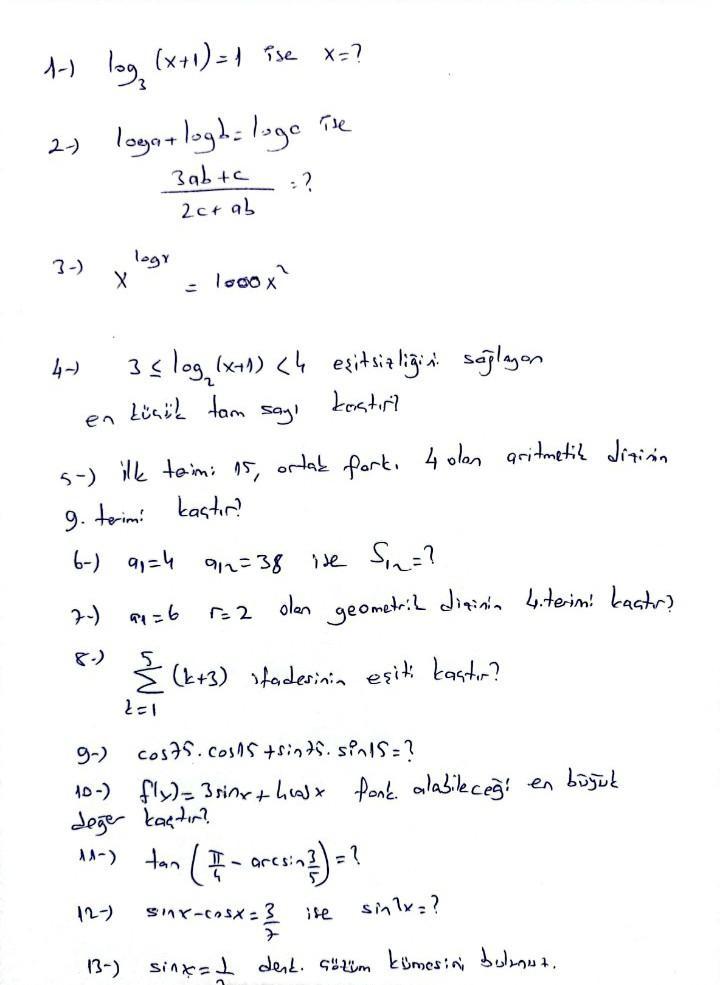 1-) log₃ (x+1)=1 ise x=?
2-) loga+logb=logc ise
3ab+c / 2c+ab =?
3-) x^logx = 1000x²
4-) 3 ≤ log₂(x+1) <4 eşitsizliğini sağlayan
en küçük tam sayı kaçtır?
5-) ilk terimi 15, ortak farkı 4 olan aritmetik dizinin
9. terimi kaçtır?
6-) a1=4 a12=38 ise S12=?
7-) a1=6 r=2 olan geometrik dizinin 4.terimi kaçtır?
8-) 5 Σ k=1 (k+3) ifadesinin eşiti kaçtır?
9-) cos75.cos15+sin75.sin15=?
10-) f(x)=3sinx+4cosx fonk. alabileceği en büyük
değer kaçtır?
11-) tan (π/4 - arcsin 3/5)=?
12-) sinx-cosx=3/7 ise sin2x=?
13-) sinx=1/ denk. çözüm kümesini bulunuz.